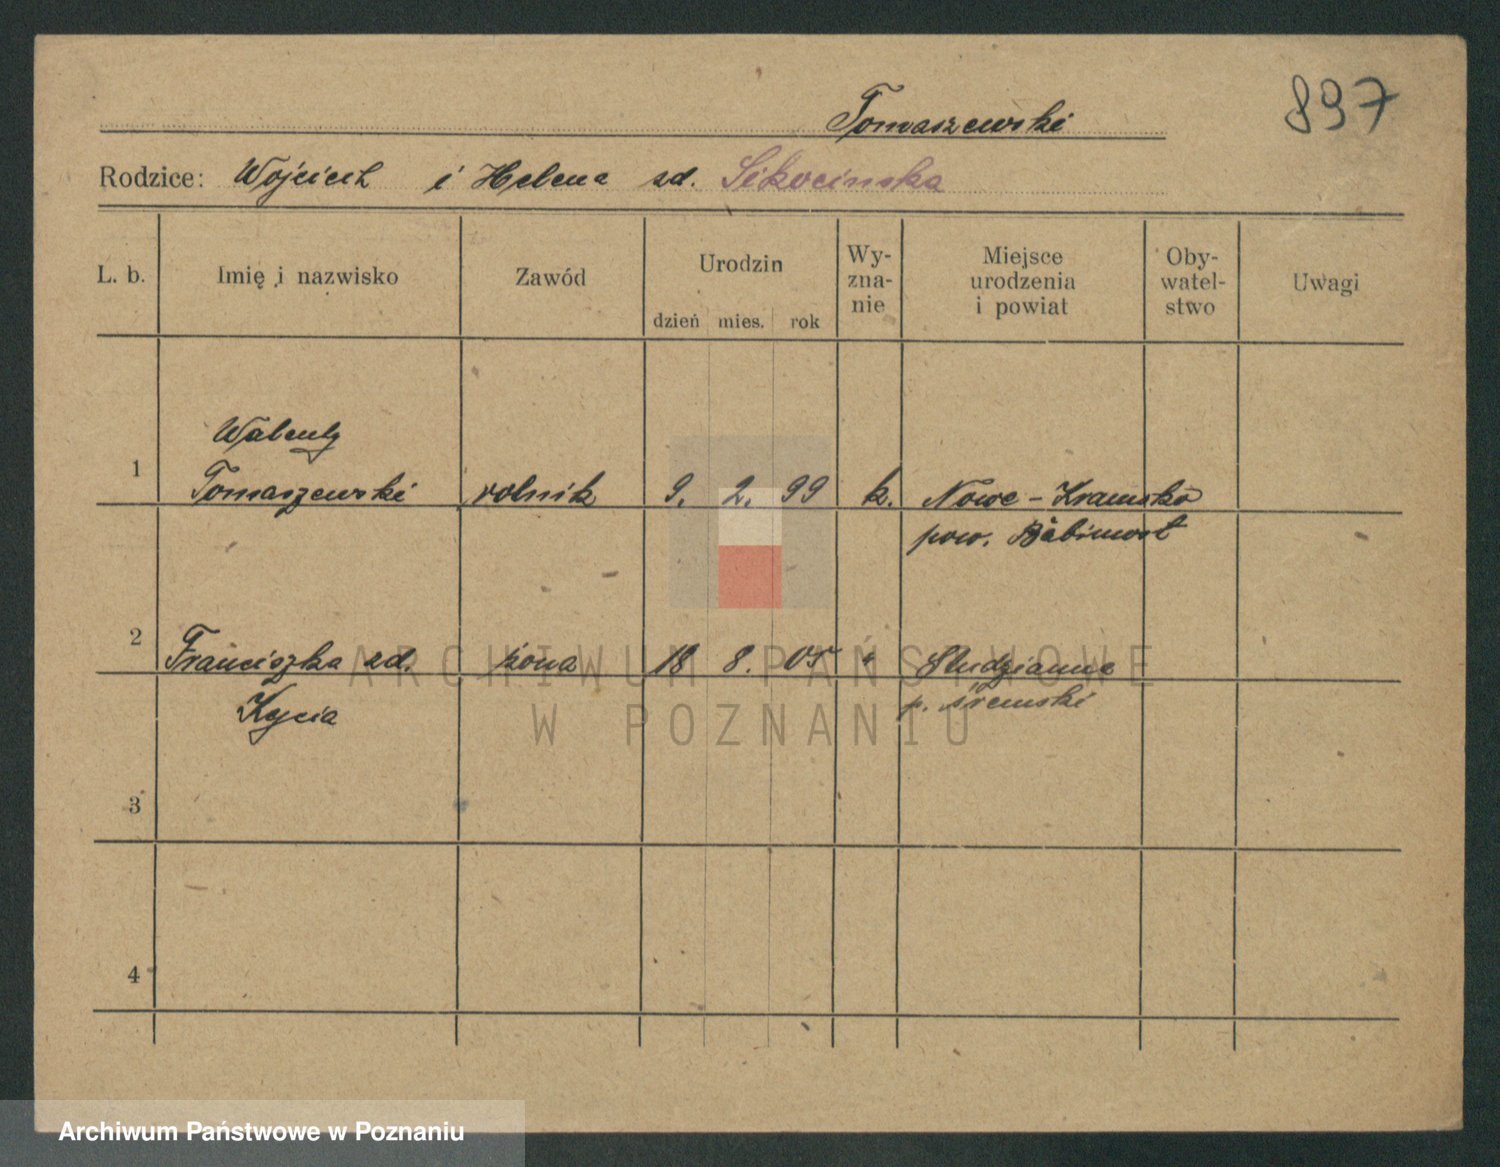 Tomaszewski
897
Rodzice: Wojciech i Helena zd. Sikocinska
L. b.
Imię i nazwisko
Zawód
Urodzin
dzień mies. rok
Wy-
zna-
nie
Miejsce
urodzenia
i powiat
Oby-
watel-
stwo
Uwagi
Walenty
1 Tomaszewski rolnik 9. 2. 99 k. Nowe-Kramsko
pow. Babimost
2 Franciszka zd. żona 18 8. 05 " Studzianna
Kycia p. śremski
3
4
ARCHIWUM PAŃSTWOWE
W POZNANIU
Archiwum Państwowe w Poznaniu